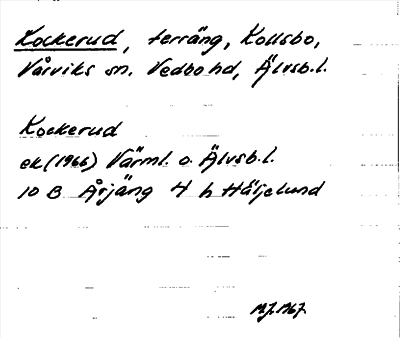 Kockerud, terräng, Kollsbo,
Vårviks sn. Vedbo hd, Älvsb.l.
Kockerud
ek (1966) Värml. o. Älvsb.l.
10 B Årjäng 4 h Häljelund